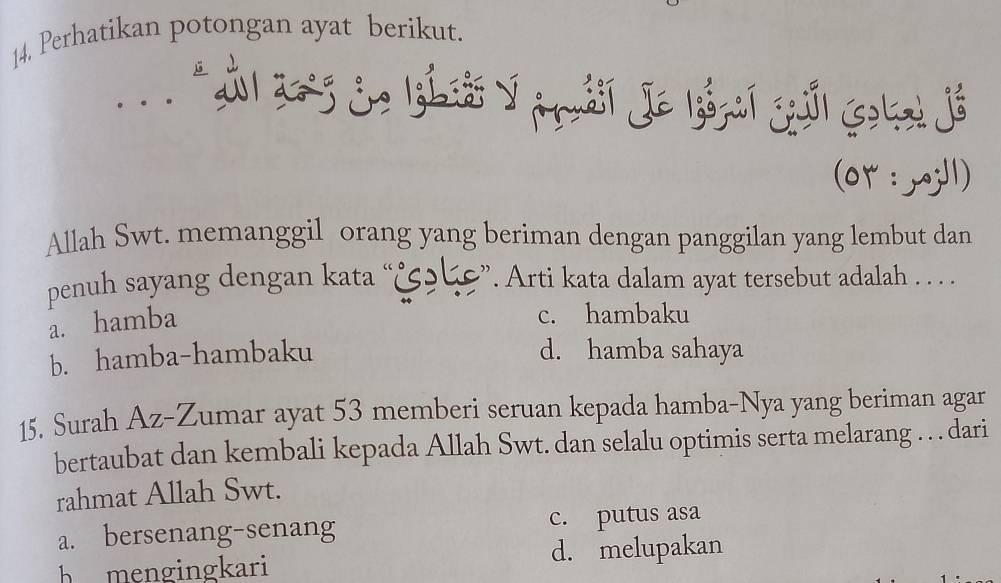 14. Perhatikan potongan ayat berikut.
قُلْ يٰعِبَادِيَ الَّذِيْنَ اَسْرَفُوْا عَلٰٓى اَنْفُسِهِمْ لَا تَقْنَطُوْا مِنْ رَّحْمَةِ اللّٰهِ ۗ . . .
(الزمر : ٥٣)
Allah Swt. memanggil orang yang beriman dengan panggilan yang lembut dan
penuh sayang dengan kata “عِبَادِيْ”. Arti kata dalam ayat tersebut adalah . . . .
a. hamba
b. hamba-hambaku
c. hambaku
d. hamba sahaya
15. Surah Az-Zumar ayat 53 memberi seruan kepada hamba-Nya yang beriman agar
bertaubat dan kembali kepada Allah Swt. dan selalu optimis serta melarang . . . dari
rahmat Allah Swt.
a. bersenang-senang
b mengingkari
c. putus asa
d. melupakan